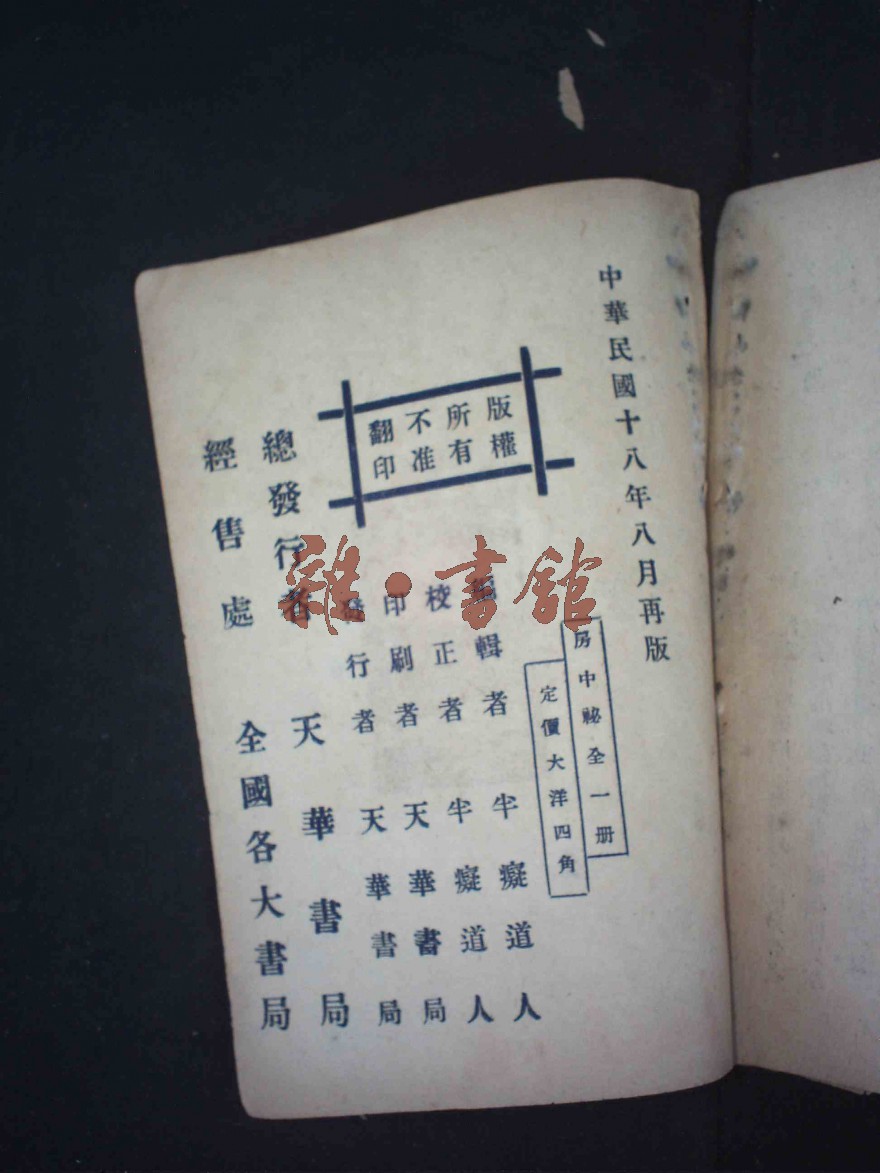 中華民國十八年八月再版
房中祕全一册
定價大洋四角
版權
所有
不准
翻印
編輯者 半癡道人
校正者 半癡道人
印刷者 天華書局
發行者 天華書局
總發行者 天華書局
經售處 全國各大書局
雜·書館